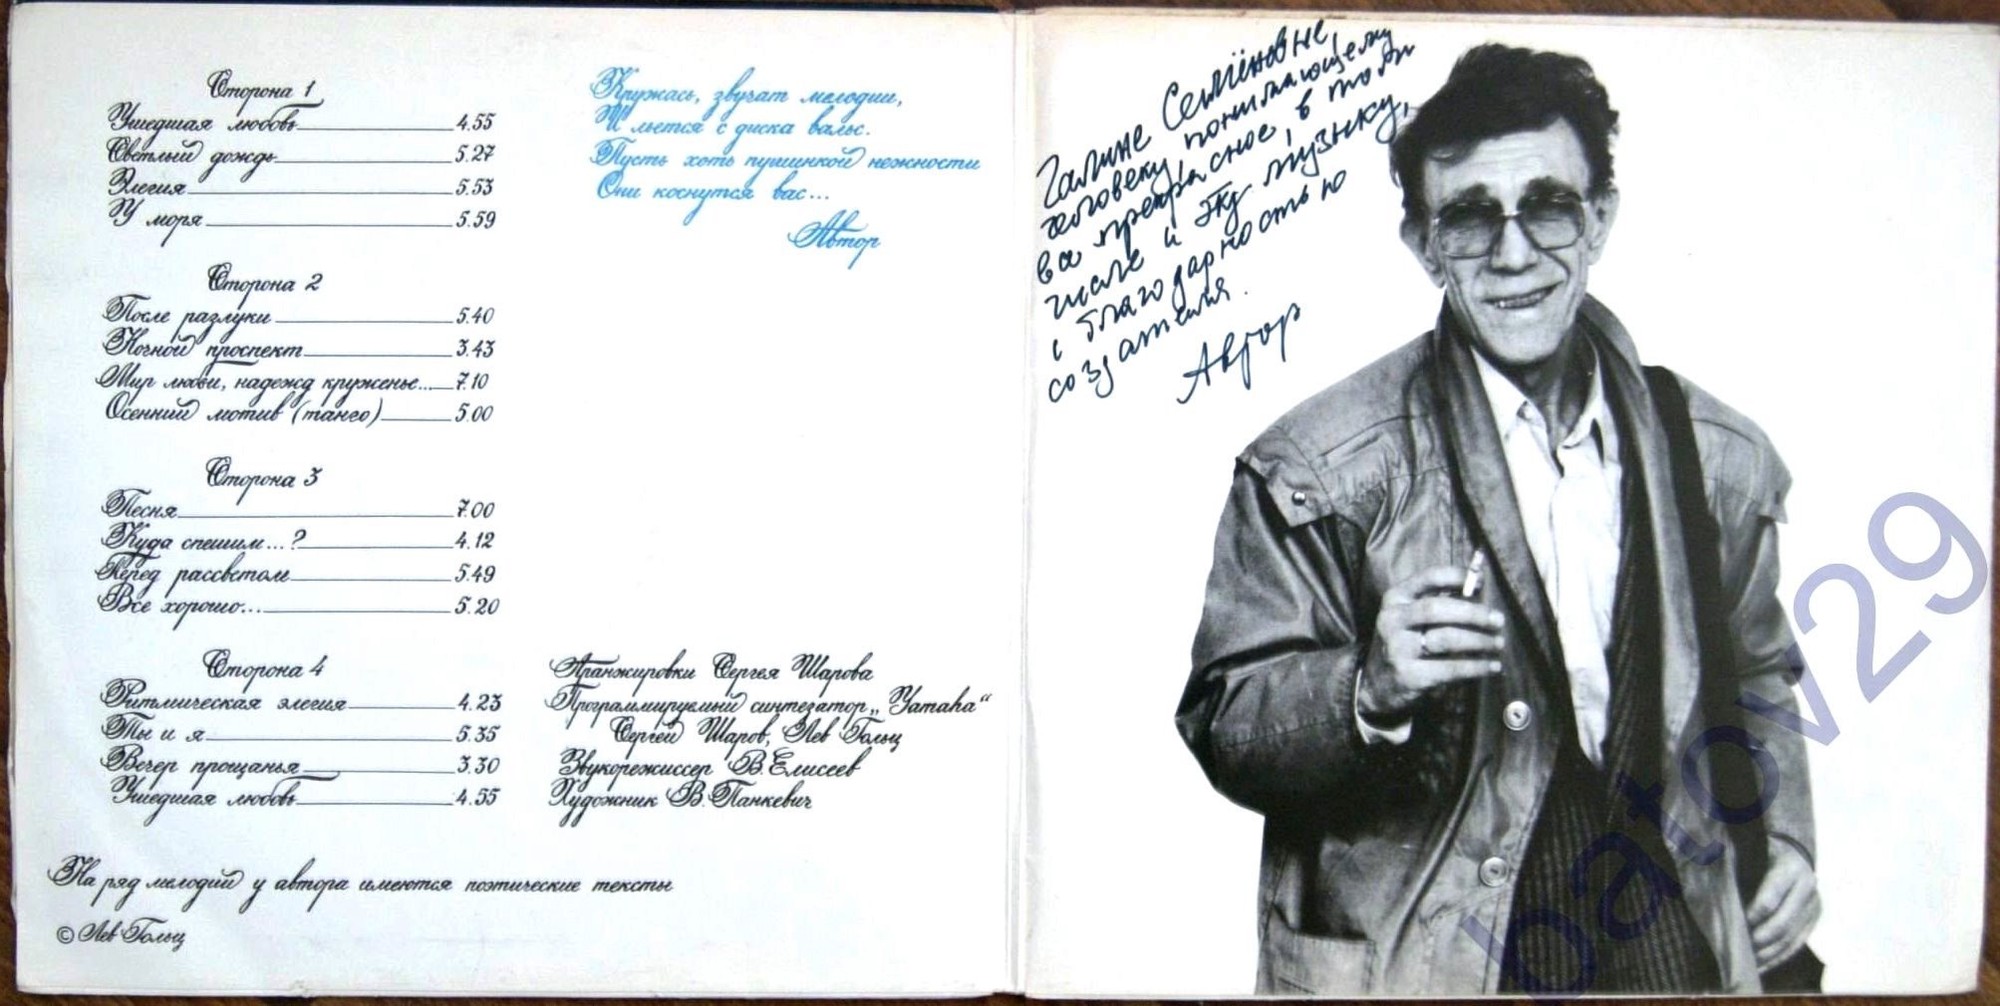 Сторона 1
Ушедшая любовь 4.55
Светлый дождь 5.27
Элегия 5.53
У моря 5.59
Сторона 2
После разлуки 5.40
Ночной проспект 3.43
Мир любви, надежд круженье... 7.10
Осенний мотив (танго) 5.00
Сторона 3
Песня 7.00
Куда спешим...? 4.12
Перед рассветом 5.49
Все хорошо... 5.20
Сторона 4
Ритмическая элегия 4.23
Ты и я 5.35
Вечер прощанья 3.30
Ушедшая любовь 4.55
На ряд мелодий у автора имеются поэтические тексты
© Лев Гольц
Кружась, звучат мелодии,
И льется с диска вальс.
Пусть хоть пушинкой нежности
Они коснутся вас...
Автор
Аранжировки Сергея Шарова
Программируемый синтезатор „Yamaha“
Сергей Шаров, Лев Гольц
Звукорежиссер В. Елисеев
Художник В. Панкевич
Галине Семёновне,
человеку, понимающему
все прекрасное, в том
числе и эту музыку,
с благодарностью
создателя.
Автор
batov29